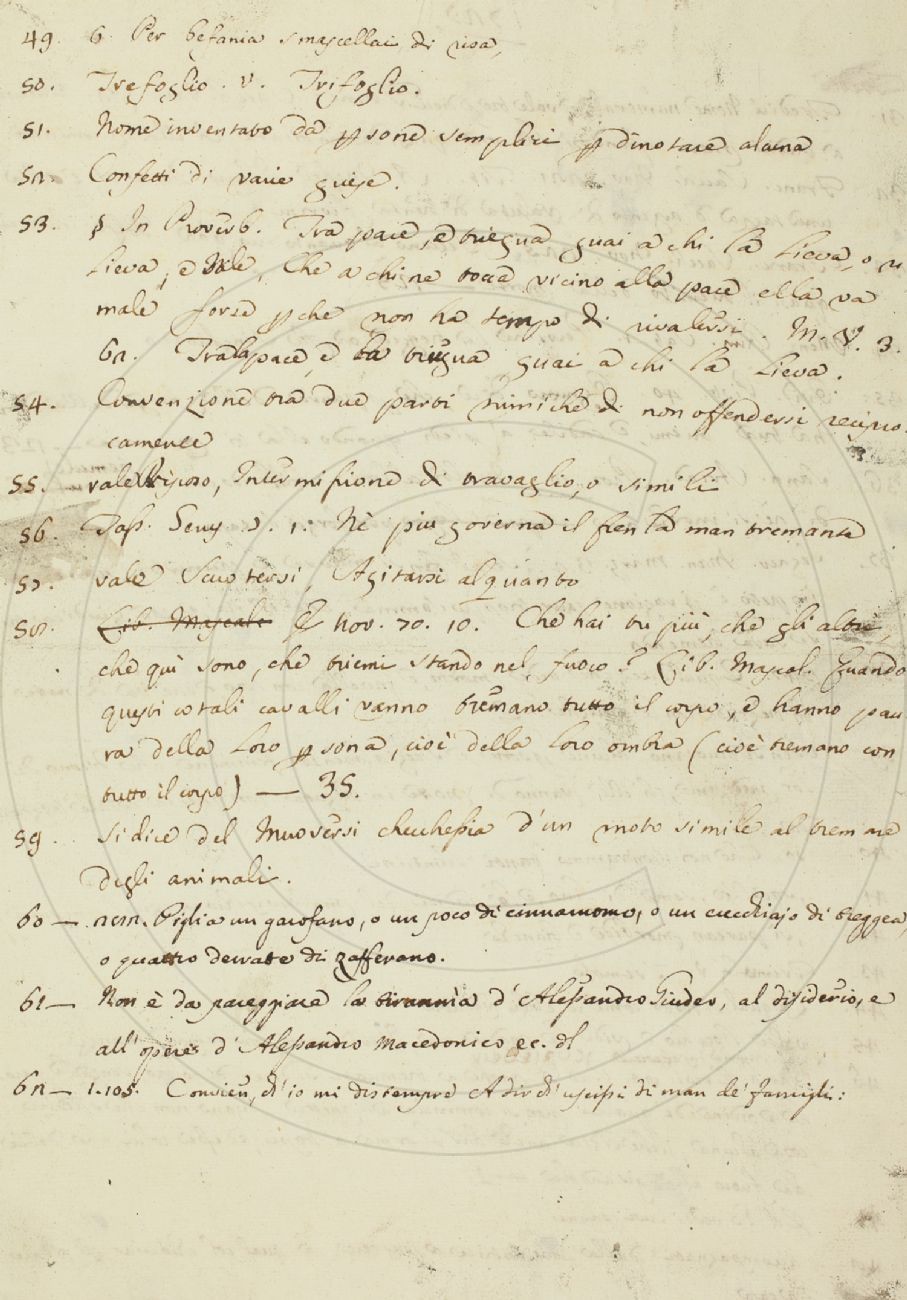 49. 6. Per befania smascellai di risa,
50. Trefoglio. v. Trifoglio.
51. Nome inventato da psone semplici p dinotare alcuna
52. Confetti di varie guise.
53. § In Proverb. Tra pace, e triegua guai a chi la Lieva, o ri
Lieva, e Vale, Che a chi ne tocca vicino alla pace ella va
male forse p che non ha tempo di rivalersi. M. V. 3.
62. Tra la pace, e la triegua guai a chi la Lieva.
54. Convenzione tra due parti nimiche di non offendersi recipro
camente
55. vale Riposo, Intermissione di travaglio, o simili
56. Tass. Gerus 2. 1. Nè più governa il fren la man tremante
57. vale Scuotersi, Agitarsi alquanto
58. Lib. Mascalc Nov. 70. 10. Che hai tu più, che gli altri,
che qui sono, che triemi stando nel fuoco? Lib. Mascal. Quando
questi cotali cavalli vanno tremano tutto il corpo, e hanno pau
ra della Loro psona, cioè della Loro ombra (cioè tremano con
tutto il corpo) — 35.
59. Si dice del Muoversi checchessia d'un moto simile al tremare
degli animali.
60 — Piglia un garofano, o un poco di cinnamomo, o un cucchiajo di treggea,
o quattro derrate di zafferano.
61 — Non è da pareggiare la tirannìa d'Alessandro Giudeo, al disiderio, e
all'opere d'Alessandro Macedonico ec. dl
62 — 1.105. Convien, ch'io mi distempre A dir ch'uscissi di man de' famigli: